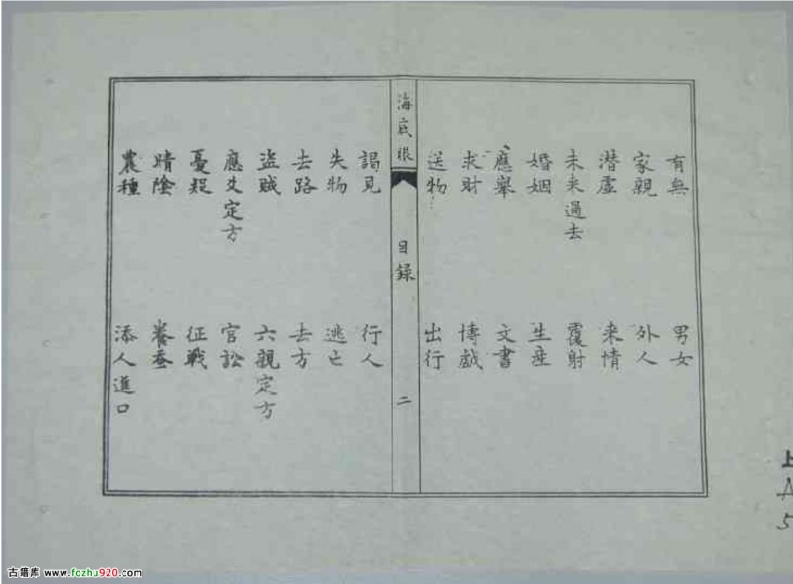 有無　男女
家親　外人
潛虛　来情
未来過去　覆射
婚姻　生産
應舉　文書
求財　博戲
送物　出行
海底眼　目錄　二
謁見　行人
失物　逃亡
去路　去方
盜賊　六親定方
應爻定方　官訟
憂疑　征戰
晴陰　養蚕
農種　添人進口
上
5
古籍库 www.fczhu920.com